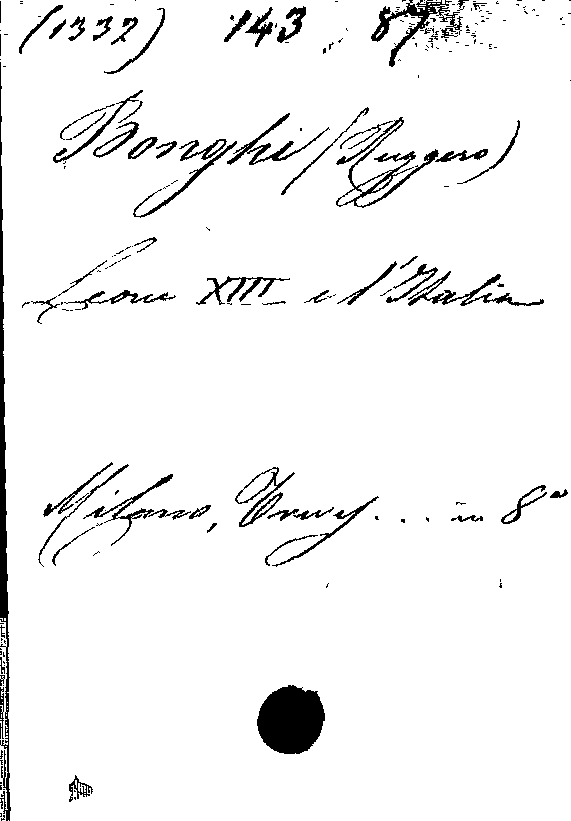 (1332) 143 87
Bonghi (Ruggero)
Leone XIII e l'Italia
Milano, Trèves... in 8°